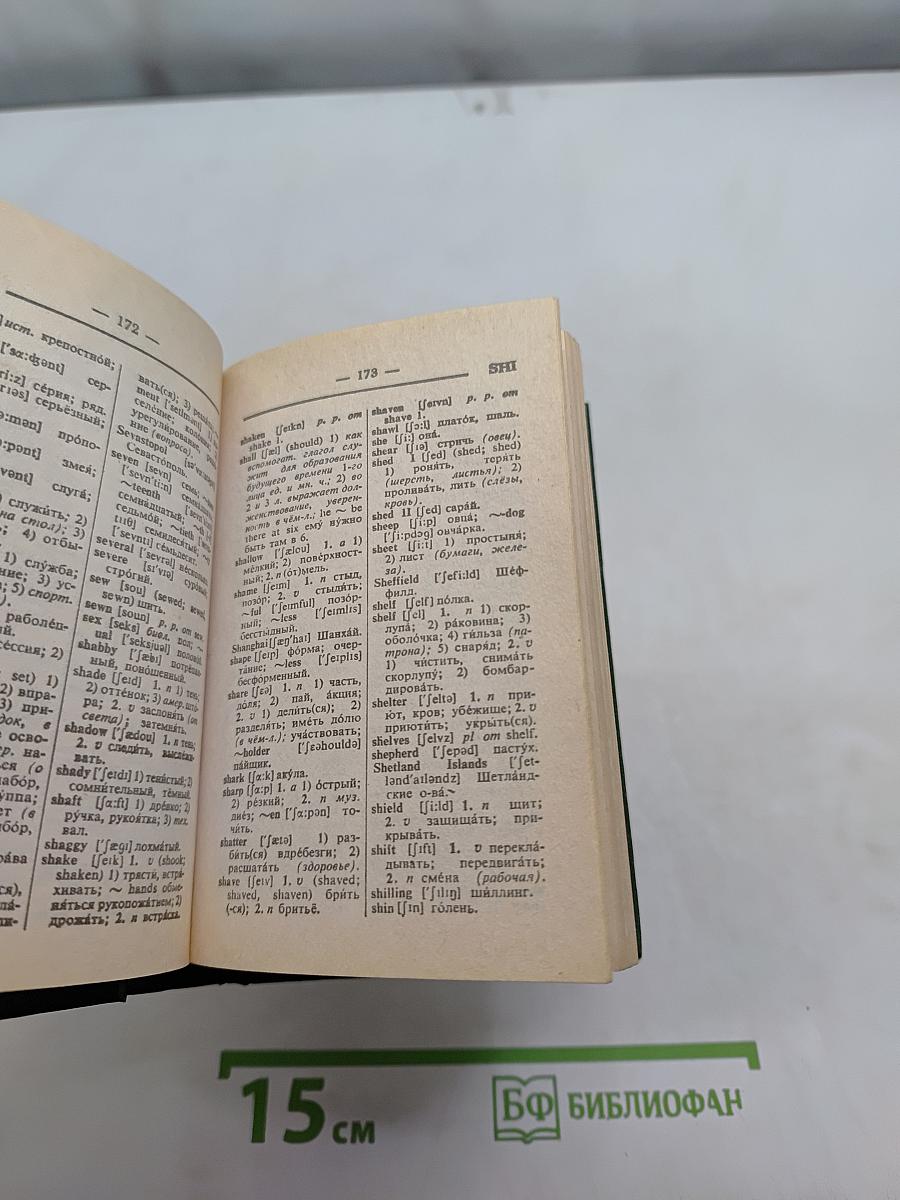 — 172 —
ист. крепостно́й;
['sɑ:ʤənt] сер-
се́рия; ряд.
серьёзный;
про́по-
змея́;
слуга́;
служи́ть; 2)
на стол); 3)
4) отбы-
1) слу́жба;
ние; 3) ус-
5) спорт.
раболе́п-
се́ссия; 2)
set) 1)
2) впра-
3) при-
осво-
на-
набо́р,
вать(ся); 3)
ment ['setlmənt]
селе́ние;
урегули́рование;
ние (вопроса).
Sevastopol
Севасто́поль.
seven [sevn] семь;
['sevn'ti:n]
~teenth
семна́дцатый;
седьмо́й; ~tieth
семидеся́тый;
['sevntɪ] се́мьдесят.
several ['sevrəl] не́сколько
severe [sɪ'vɪə] суро́вый,
стро́гий.
sew [sou] (sewed; sewed,
sewn) шить.
sewn [soun] p. p. от sew.
sex [seks] биол. пол;
ual ['seksjuəl] полово́й.
shabby ['ʃæbɪ] потрёпан-
ный, поно́шенный.
shade [ʃeɪd] 1. n 1) тень;
2) отте́нок; 3) амер. што́-
ра; 2. v заслоня́ть (от
света); затемня́ть.
shadow ['ʃædou] 1. n тень;
2. v следи́ть, высле́жи-
вать.
shady ['ʃeɪdɪ] 1) тени́стый; 2)
сомни́тельный, тёмный.
shaft [ʃɑ:ft] 1) дре́вко; 2)
ру́чка, рукоя́тка; 3) тех.
вал.
shaggy ['ʃægɪ] лохма́тый.
shake [ʃeɪk] 1. v (shook;
shaken) 1) трясти́, встря́-
хивать; ~ hands обме́-
ня́ться рукопожа́тием; 2)
дрожа́ть; 2. n встря́ска.
— 173 — SHI
shaken [ʃeɪkn] p. p. от
shake 1.
shall [ʃæl] (should) 1) как
вспомогат. глагол слу-
жит для образования
будущего времени 1-го
лица ед. и мн. ч.; 2) во
2 и 3 л. выражает дол-
женствование, уверен-
ность в чём-л.; he ~ be
there at six ему́ ну́жно
быть там в 6.
shallow ['ʃælou] 1. a 1)
ме́лкий; 2) пове́рхност-
ный; 2. n (о́т)мель.
shame [ʃeɪm] 1. n стыд,
позо́р; 2. v стыди́ть;
~ful ['ʃeɪmful] позо́р-
ный; ~less ['ʃeɪmlɪs]
бессты́дный.
Shanghai [ʃæŋ'haɪ] Шанха́й.
shape [ʃeɪp] фо́рма; очер-
та́ние; ~less ['ʃeɪplɪs]
бесфо́рменный.
share [ʃɛə] 1. n 1) часть,
до́ля; 2) пай, а́кция;
2. v 1) дели́ть(ся); 2)
разделя́ть; име́ть до́лю
(в чём-л.); уча́ствовать;
~holder ['ʃɛəhouldə]
па́йщик.
shark [ʃɑ:k] аку́ла.
sharp [ʃɑ:p] 1. a 1) о́стрый;
2) ре́зкий; 2. n муз.
дие́з; ~en ['ʃɑ:pən] то-
чи́ть.
shatter ['ʃætə] 1) раз-
би́ть(ся) вдре́безги; 2)
расшата́ть (здоровье).
shave [ʃeɪv] 1. v (shaved;
shaved, shaven) брить
(-ся); 2. n бритьё.
shaven [ʃeɪvn] p. p. от
shave 1.
shawl [ʃɔ:l] плато́к, шаль.
she [ʃi:] она́.
shear [ʃɪə] стричь (овец).
shed I [ʃed] (shed; shed)
1) роня́ть, теря́ть
(шерсть, листья); 2)
пролива́ть, лить (слёзы,
кровь).
shed II [ʃed] сара́й.
sheep [ʃi:p] овца́; ~-dog
['ʃi:pdɔg] овча́рка.
sheet [ʃi:t] 1) простыня́;
2) лист (бумаги, желе-
за).
Sheffield ['ʃefi:ld] Ше́ф-
филд.
shelf [ʃelf] по́лка.
shell [ʃel] 1. n 1) скор-
лупа́; 2) ра́ковина; 3)
оболо́чка; 4) ги́льза (па-
трона); 5) снаря́д; 2. v
1) чи́стить, снима́ть
скорлупу́; 2) бомбар-
дирова́ть.
shelter ['ʃeltə] 1. n при-
ю́т, кров; убе́жище; 2. v
приюти́ть; укры́ть(ся).
shelves [ʃelvz] pl от shelf.
shepherd ['ʃepəd] пасту́х.
Shetland Islands ['ʃet-
lənd'aɪləndz] Шетла́нд-
ские о-ва́.
shield [ʃi:ld] 1. n щит;
2. v защища́ть; при-
крыва́ть.
shift [ʃɪft] 1. v перекла́-
дывать; передвига́ть;
2. n сме́на (рабочая).
shilling ['ʃɪlɪŋ] ши́ллинг.
shin [ʃɪn] го́лень.
15 см
БФ БИБЛИОФАН